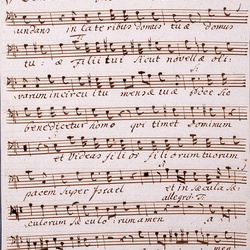 undans in lateribus domus tuæ domus
tu: æ Filii tui sicut novellæ oli:
varum in circuitu mensæ tuæ Ecce sic
benedicetur homo qui timet Dominum
et videas filios filiorum tuorum
pacem super Israel et in sæcula sæ
allegro
culorum sæculorum amen a